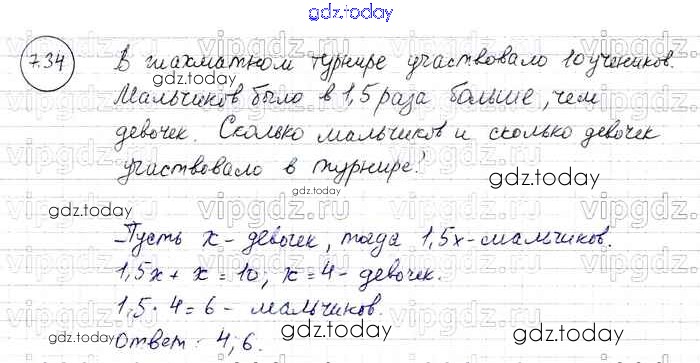 gdz.today
7.34
В шахматном турнире участвовало 10 учеников.
Мальчиков было в 1,5 раза больше, чем
девочек. Сколько мальчиков и сколько девочек
участвовало в турнире?
Пусть x - девочек, тогда 1,5x - мальчиков.
1,5x + x = 10; x = 4 - девочек.
1,5 · 4 = 6 - мальчиков.
Ответ: 4; 6.
gdz.today
gdz.today
gdz.today
gdz.today
gdz.today
gdz.today
gdz.today
vipgdz.ru
vipgdz.ru
vipgdz.ru